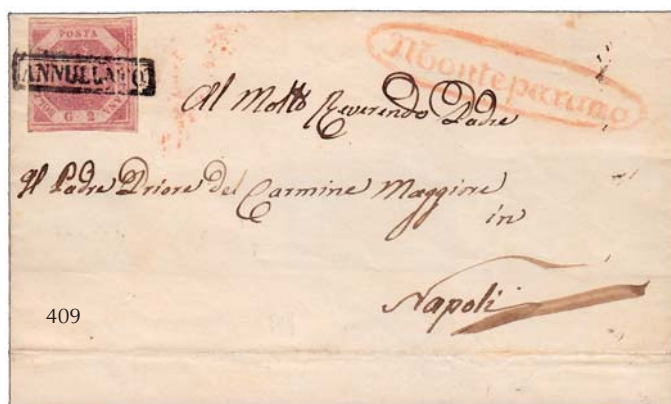 POSTA
ANNULLATO
G. 2
Monteparano
Al Molto Reverendo Padre
Il Padre Priore del Carmine Maggiore
in
Napoli
409